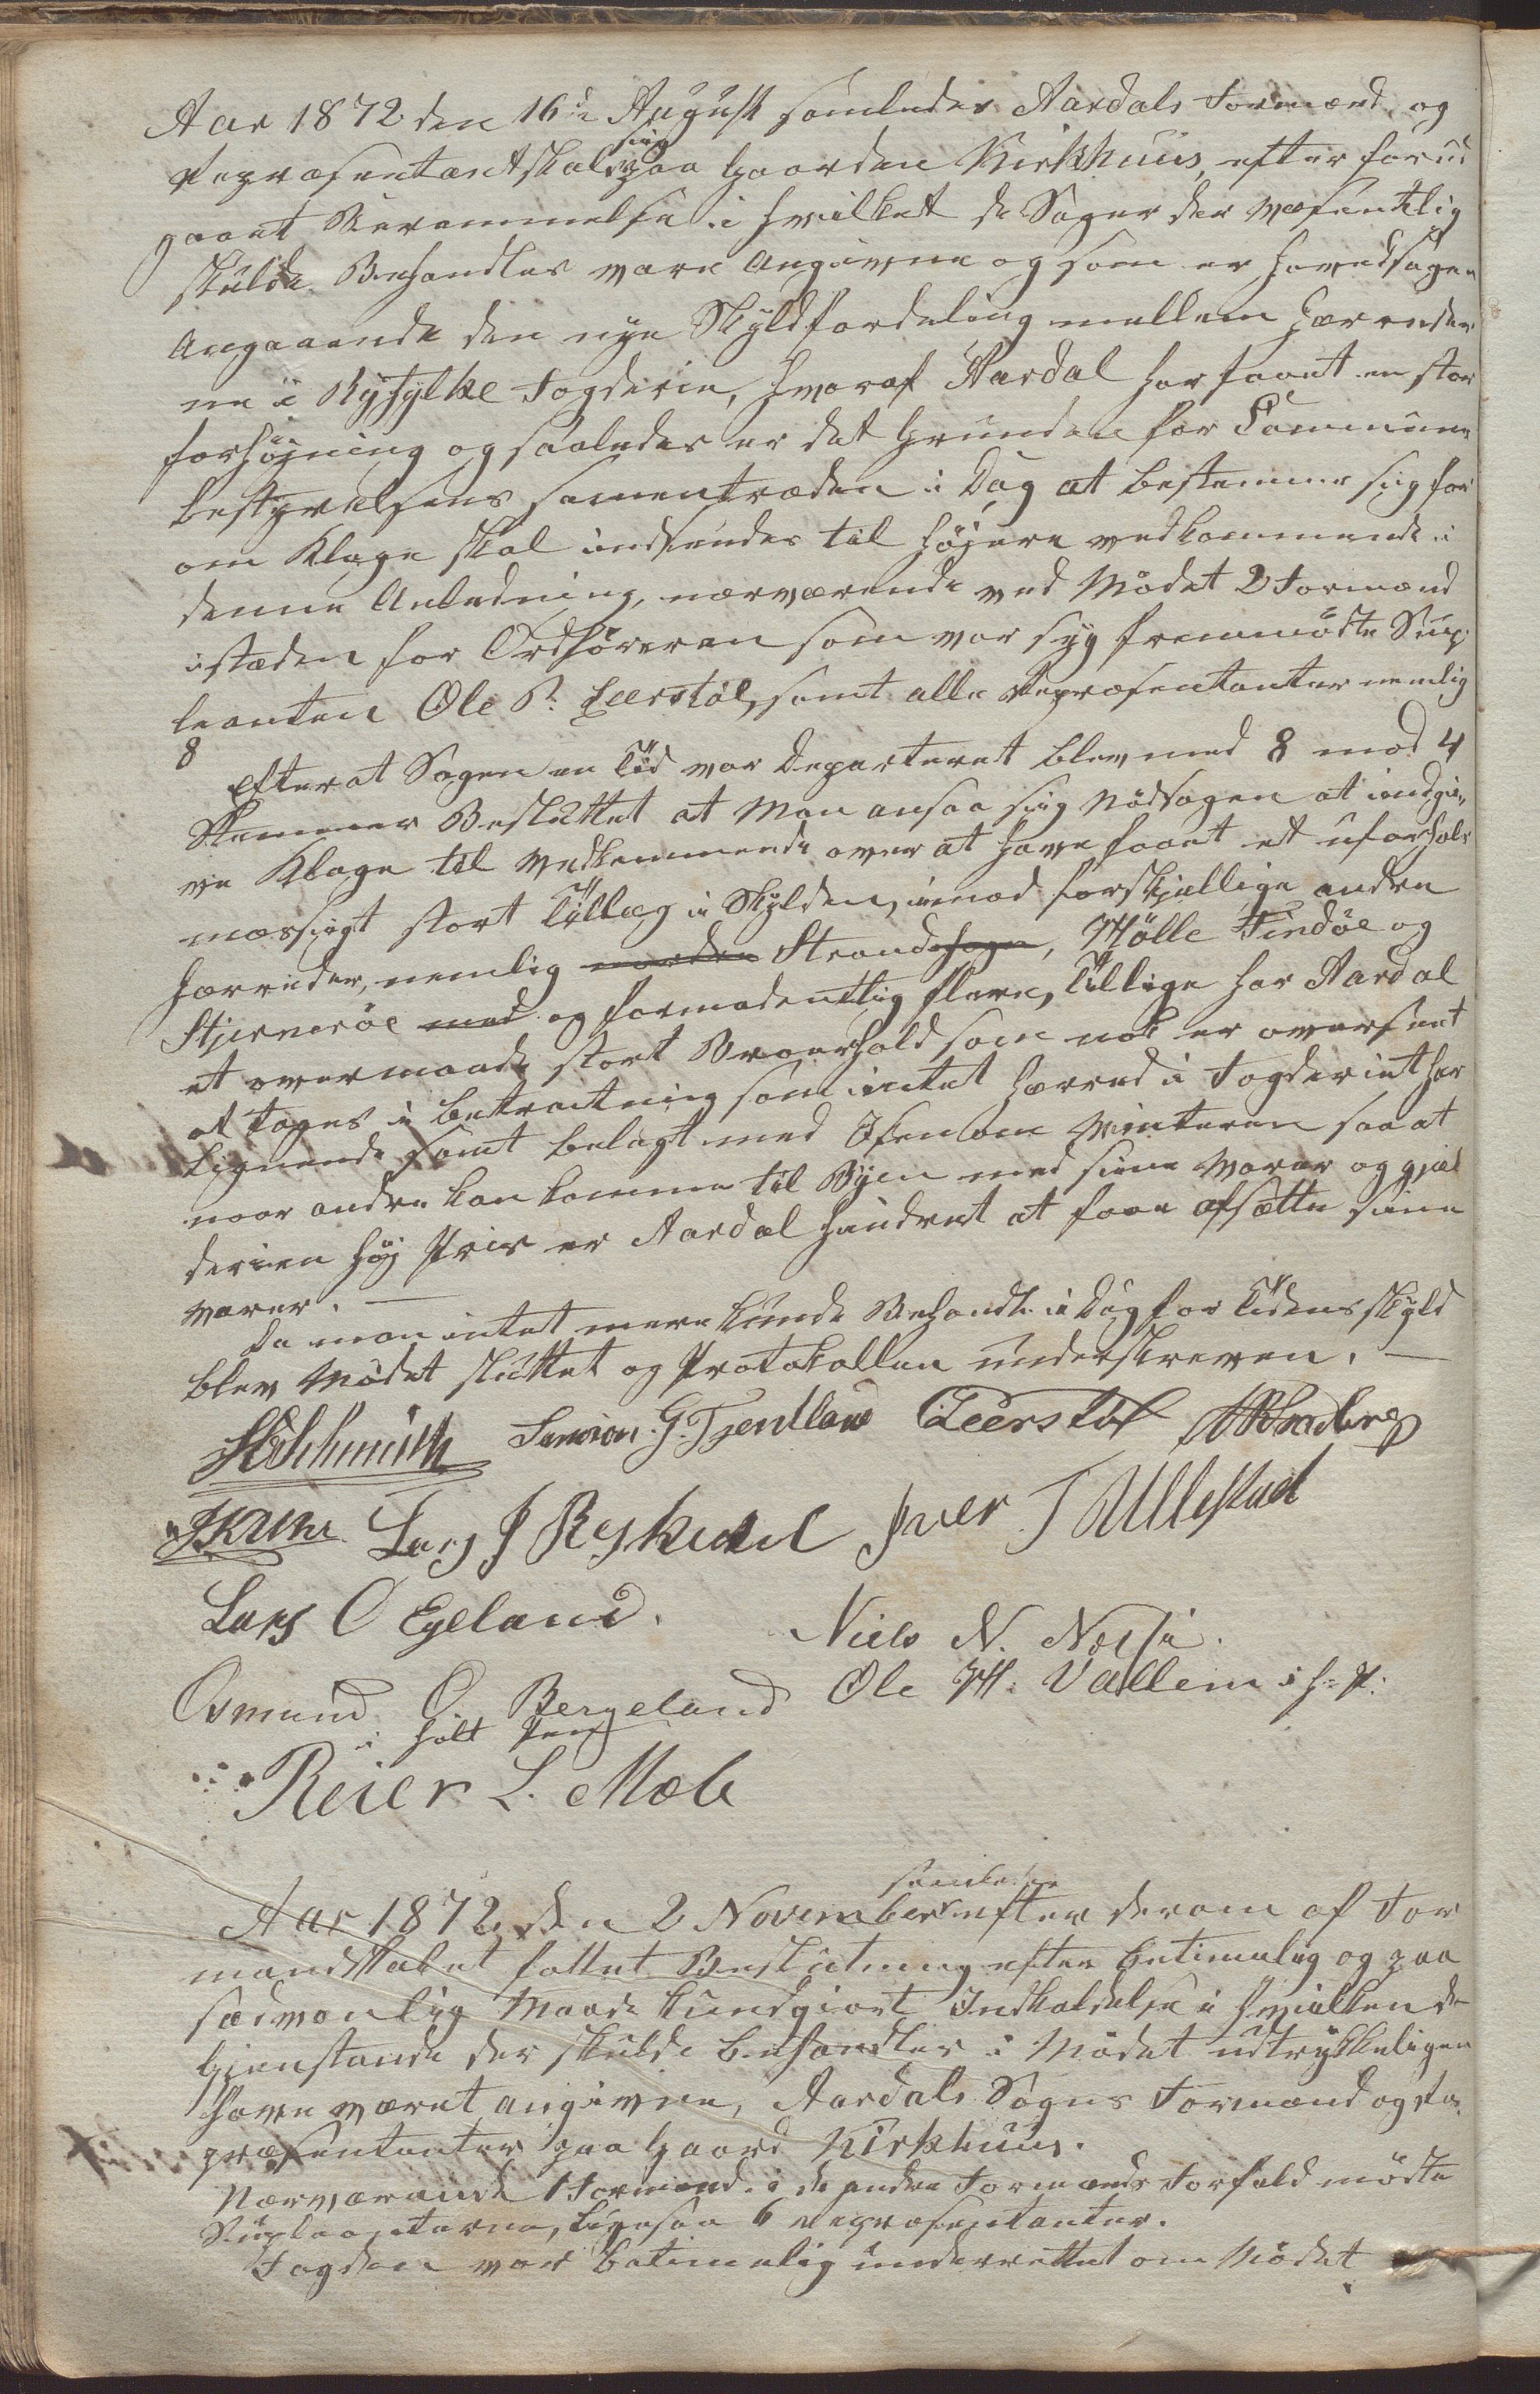 Aar 1872 den 16de August samledes Aardals Formænd og
sig
Repræsentantskab paa Gaarden Kirkhuus, efter forud
gaaet Berammelse i hvilket de Sager der væsentlig
skulde Behandles vare Angivne og som er hovedsagen
Angaaende den nye Skyldfordeling mellem Herreder
ne i Ryfylke Fogderie, hvoraf Aardal har faaet en stor
forhøjning og saaledes er det Grunden for Commune
bestyrelsens samentræden i Dag at bestemme sig for
om Klage skal indsendes til højere vedkommende i
denne Anledning, nærværende ved Mødet 2 Formænd
istæden for Ordføreren som var syg fremmødte Sup
leanten Ole P. Leerstøl, samt alle Repræsentanter nemlig
8
Efter at Sagen en Tid var Departeret blev med 8 mod 4
Stemmer Besluttet at Man ansaa sig Nødsagen at indgi,,
ve Klage til Vedkommende over at have faaet et uforhols
mæssigt stort Tillæg i Skylden, imod forskjellige andre
Herreder, nemlig norden Strandsogn, Hølle Findøe og
Stjernerøe med og formodentlig flere, Tillige har Aardal
et overmaade stort Broerhold som nok er overseet
at tages i betragtning som intet Herred i Fogderiet har
Lignende samt belagt med Isen om Vinteren saa at
naar andre kan komme til Byen med sine Varer og gjæl
der en høj Pris er Aardal hindret at faae afsætte sine
varer. —
Da man intet mere kunde Behandle i Dag for Tidens skyld
blev Mødet sluttet og Protokollen underskreven. —
Simon. G. Tjentland Leerstøl
Lars J Riskedal Iver T Ullestad
Lars O Egeland.
Niels N. Nessa.
Osmund O. Bergeland Ole M. Vallem i h. P.
i holt Pen
Reier L. Mæle
samledes
Aar 1872, den 2 November efter derom af For
mandskabet fattet Beslutning efter betimelig og paa
sædvanlig Maade kundgjort Indkaldelse i hvilken de
Gjenstande der skulde behandles i Mødet udtrykkeligen
have været angivne, Aardals Sogns Formænd og Re
præsentanter paa Gaard Kirkhuus.
Nærværende 1 Formand. i de andre Formænds Forfald mødte
Supleanterne, ligesaa 6 Repræsentanter.
Fogden var betimelig underrettet om Mødet.